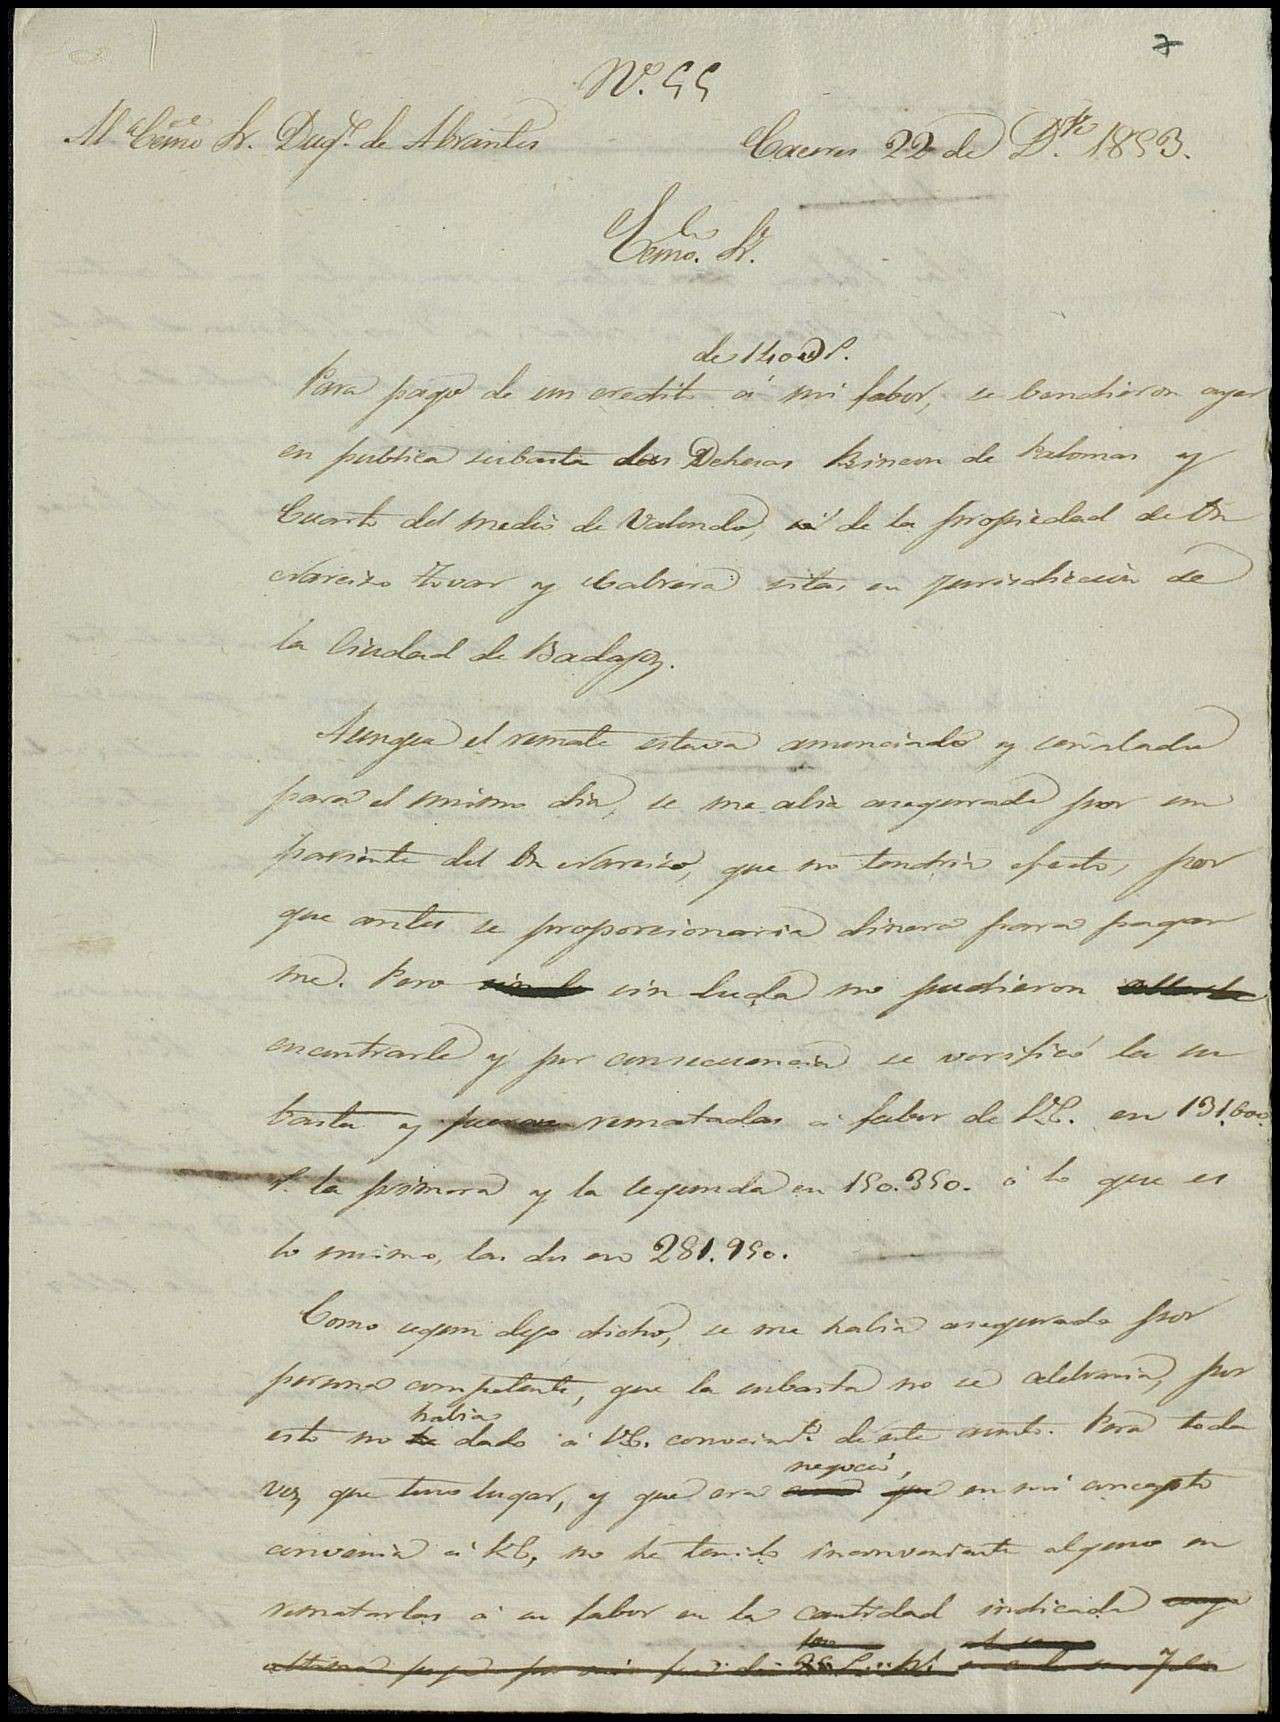 7
Nº. 55
Al Excmo Sr. Duqe. de Abrantes
Caceres 22 de Dre. 1853.
Excmo. Sr.
de 140 @ rs.
Para pago de un credito á mi fabor, se bendieron ayer
en publica subasta dos Dehesas Rincon de Palomas y
Cuarto del medio de Valondo, de la propiedad de Dn
Narciso Tovar y Cabrera sitas en jurisdiccion de
la Ciudad de Badajoz.
Aunque el remate estava anunciado y señalado
para el mismo dia, se me abia asegurado por un
pariente del Dn Narciso, que no tendria efecto, por
que antes se proporcionaria dinero para pagar
me. Pero sin duda no pudieron
encontrarle y por consecuencia se verificó la su
basta y fueron rematadas á fabor de V.E. en 131.600.
rs. la primera y la segunda en 150.350. ó lo que es
lo mismo, las dos en 281.950.
Como segun dejo dicho, se me habia asegurado por
persona competente, que la subasta no se celebraria, por
habia
esto no he dado á V.E. conocimto. de este asunto. Pero toda
negocio,
vez que tuvo lugar, y que era que en mi concepto
convenia á V.E, no he tenido inconveniente alguno en
rematarlas á su fabor en la cantidad indicada cuya